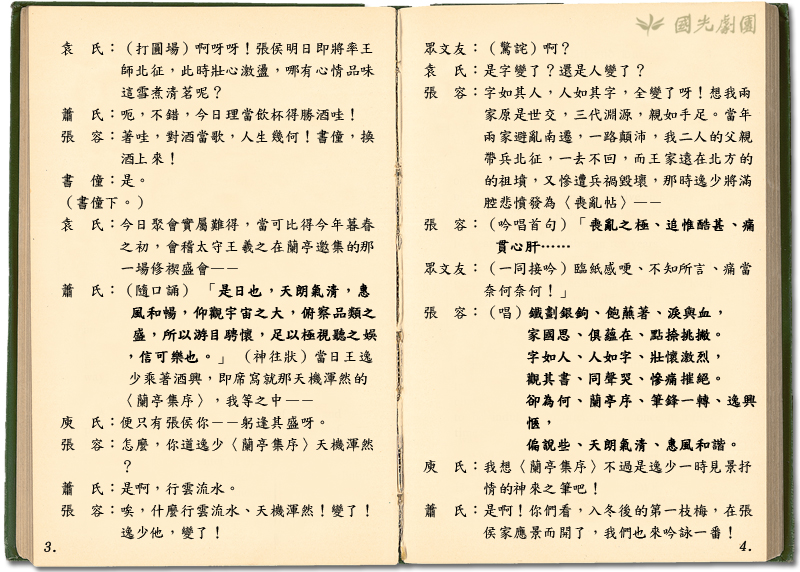 袁　氏：（打圓場）啊呀呀！張侯明日即將率王
師北征，此時壯心激盪，哪有心情品味
這雪煮清茗呢？
蕭　氏：呃，不錯，今日理當飲杯得勝酒哇！
張　容：著哇，對酒當歌，人生幾何！書僮，換
酒上來！
書　僮：是。
（書僮下。）
袁　氏：今日聚會實屬難得，當可比得今年暮春
之初，會稽太守王羲之在蘭亭邀集的那
一場修禊盛會——
蕭　氏：（隨口誦）「是日也，天朗氣清，惠
風和暢，仰觀宇宙之大，俯察品類之
盛，所以游目騁懷，足以極視聽之娛
，信可樂也。」（神往狀）當日王逸
少乘著酒興，即席寫就那天機渾然的
〈蘭亭集序〉，我等之中——
庾　氏：便只有張侯你——躬逢其盛呀。
張　容：怎麼，你道逸少〈蘭亭集序〉天機渾然
？
蕭　氏：是啊，行雲流水。
張　容：唉，什麼行雲流水、天機渾然！變了！
逸少他，變了！
3.
國光劇團
眾文友：（驚詫）啊？
袁　氏：是字變了？還是人變了？
張　容：字如其人，人如其字，全變了呀！想我兩
家原是世交，三代淵源，親如手足。當年
兩家避亂南遷，一路顛沛，我二人的父親
帶兵北征，一去不回，而王家遠在北方的
的祖墳，又慘遭兵禍毀壞，那時逸少將滿
腔悲憤發為〈喪亂帖〉——
張　容：（吟唱首句）「喪亂之極、追惟酷甚、痛
貫心肝……
眾文友：（一同接吟）臨紙感哽、不知所言、痛當
奈何奈何！」
張　容：（唱）鐵劃銀鉤、飽蘸著、淚與血，
家國思、俱蘊在、點捺挑撇。
字如人、人如字、壯懷激烈，
觀其書、同聲哭、慘痛摧絕。
卻為何、蘭亭序、筆鋒一轉、逸興
愜，
偏說些、天朗氣清、惠風和諧。
庾　氏：我想〈蘭亭集序〉不過是逸少一時見景抒
情的神來之筆吧！
蕭　氏：是啊！你們看，入冬後的第一枝梅，在張
侯家應景而開了，我們也來吟詠一番！
4.